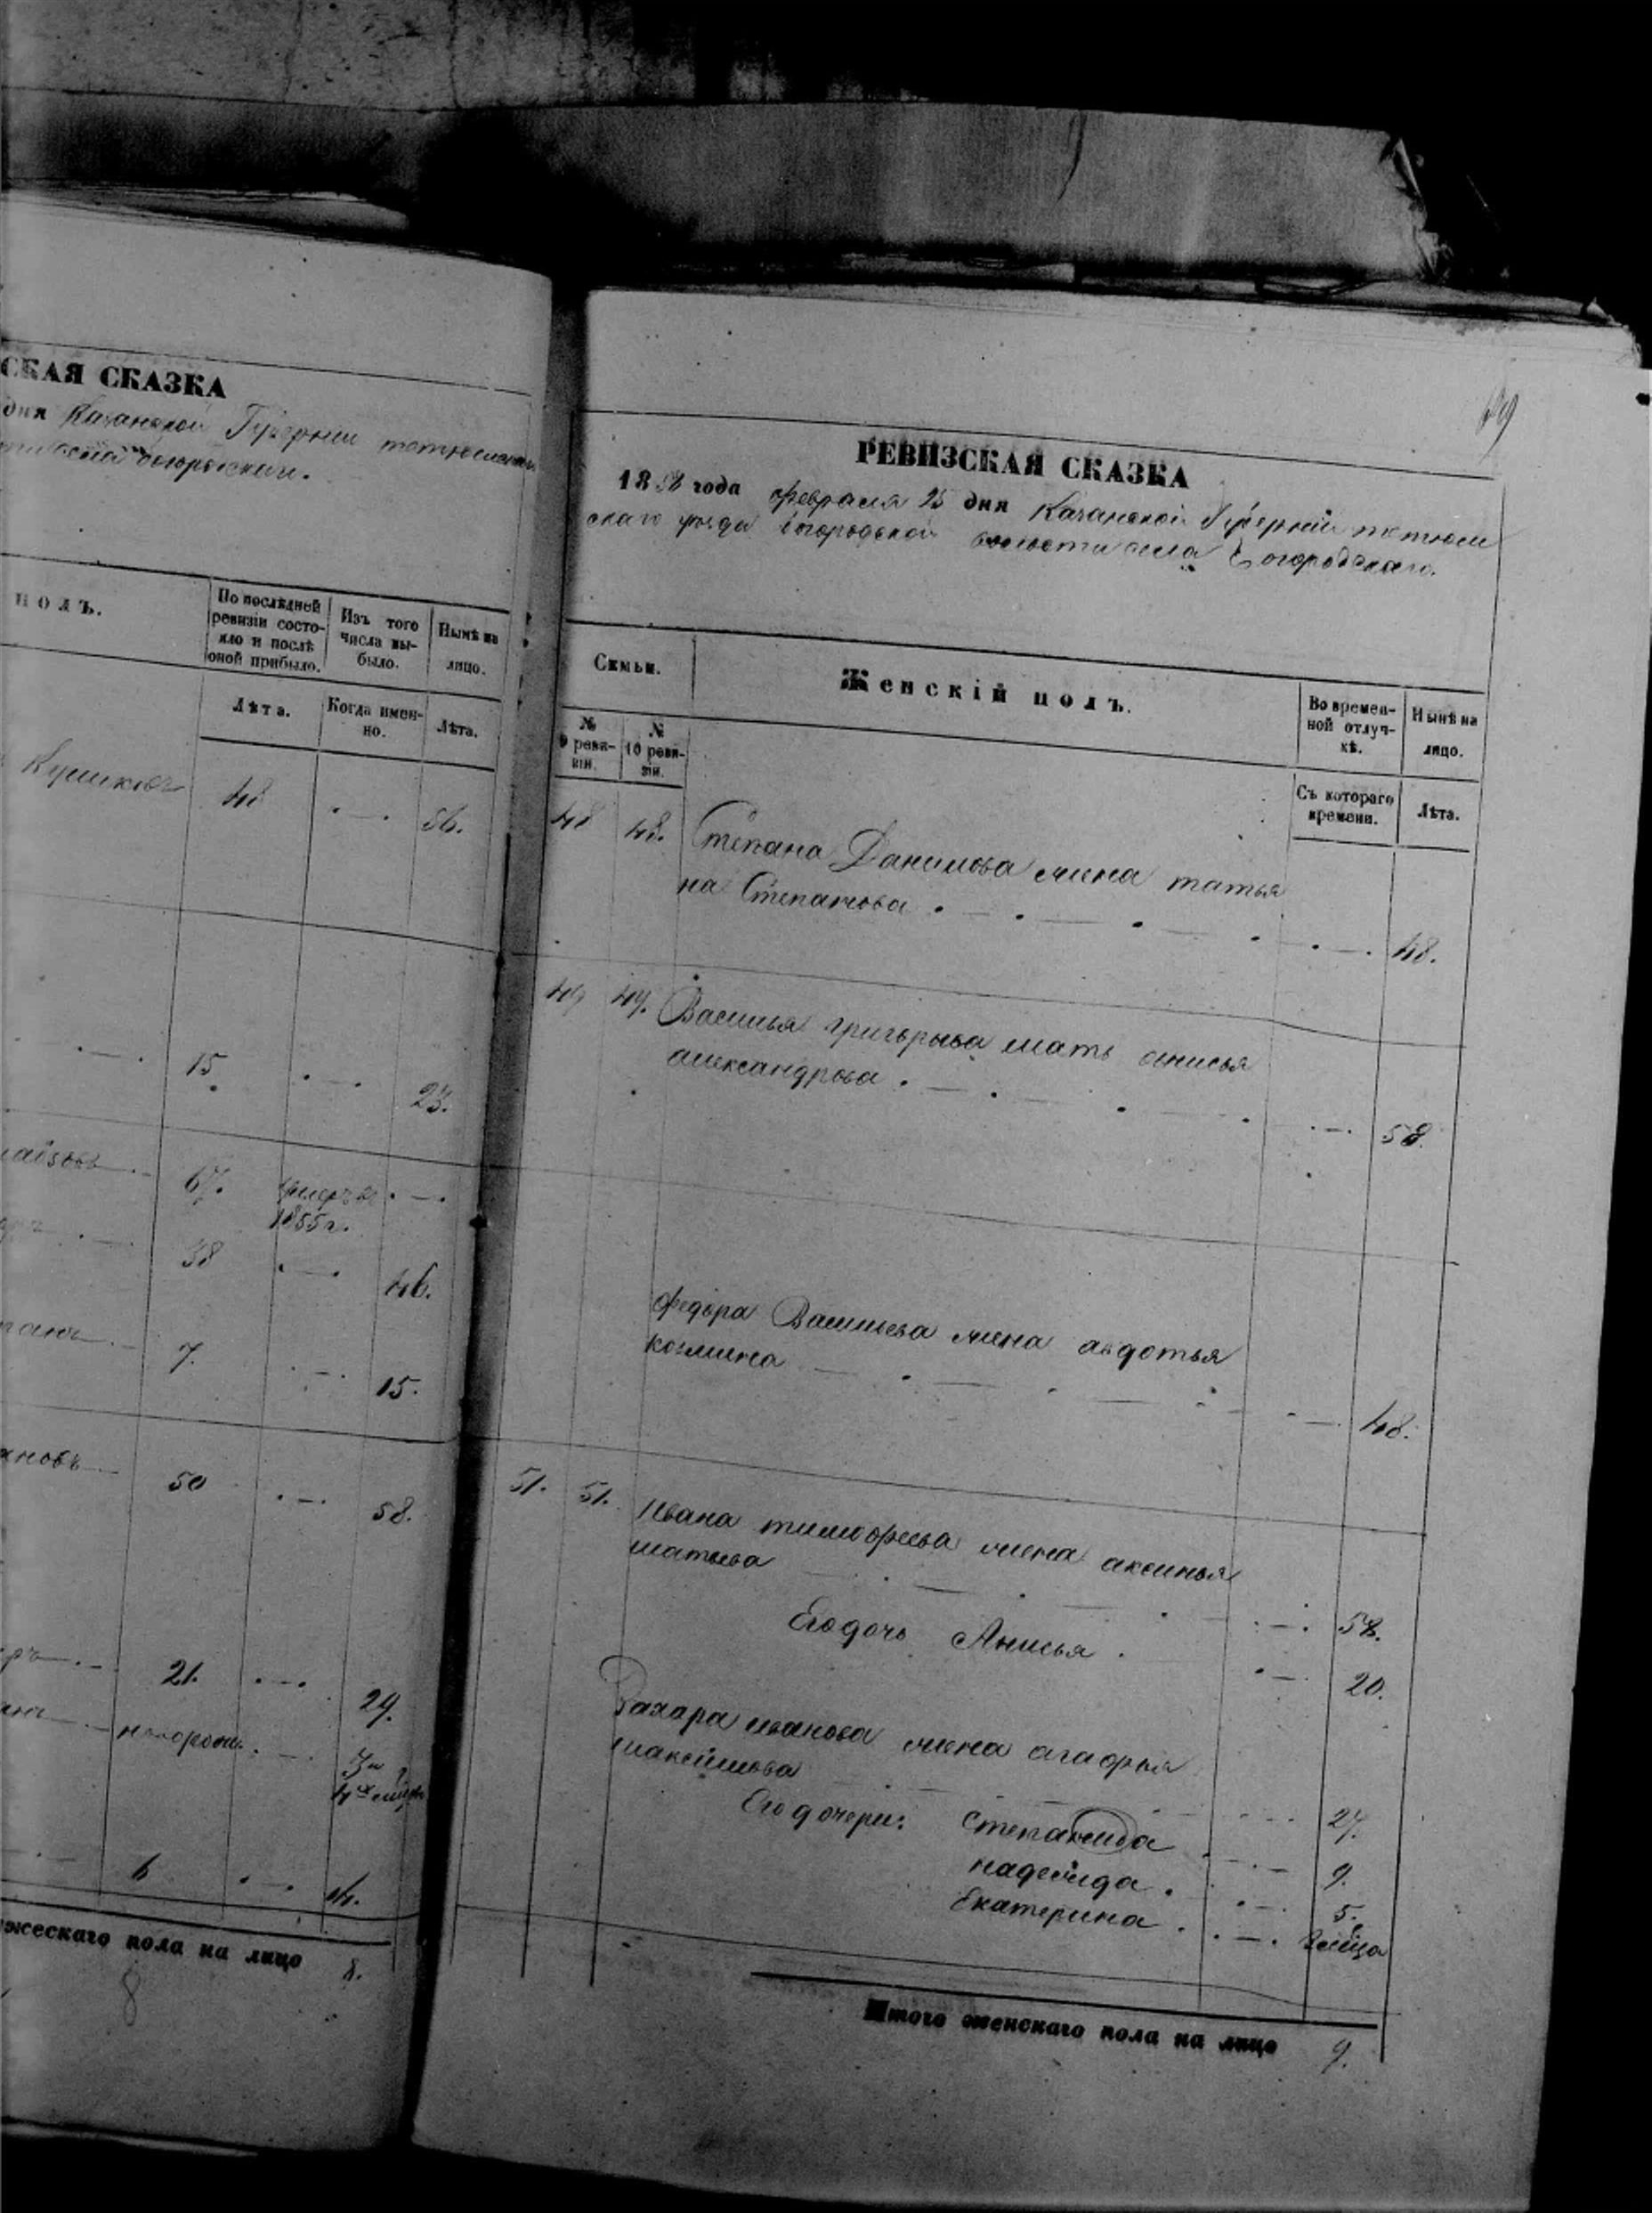 СКАЯ СКАЗКА
дня Казанской Губернии тетюшскаго
ПОЛЪ.
По послѣдней
ревизіи состо-
яло и послѣ
оной прибыло.
Изъ того
числа вы-
было.
Нынѣ на
лицо.
Лѣта.
Когда имен-
но.
Лѣта.
48 . — . 56.
. — . 15. . — . 23.
67. умеръ въ . — .
1855 г.
38 . — . 46.
7. . — . 15.
ановъ 50 . — . 58.
21. . — . 29.
новорож. . — .
6 . — . 14.
жескаго пола на лицо 8.
8
69
РЕВИЗСКАЯ СКАЗКА
1858 года февраля 25 дня Казанской Губерніи тетюш
скаго уезда Богородской волости села Богородскаго.
Семьи.
Женскій полъ.
Во времен-
ной отлуч-
кѣ.
Нынѣ на
лицо.
№
9 реви-
зіи.
№
10 реви-
зіи.
Съ котораго
времени.
Лѣта.
48 48. Степана Данилова жена татья
на Степанова . — . — . — . — . — . 48.
49 49. Василья григорьева мать анисья
александрова . — . — . — . . — . 58.
федора Васильева жена авдотья
козмина — . — . — . — . — . 48.
51. 51. Ивана тимофеева жена аксинья
матвеева — . — . — . — . — . 58.
Его дочь Анисья . . — . 20.
Захара иванова жена агафья
максимова 27.
Его дочери: Степанида . — . — 9.
надежида . . — . 5.
Екатерина . . — . 2 меца
Итого женскаго пола на лицо 9.